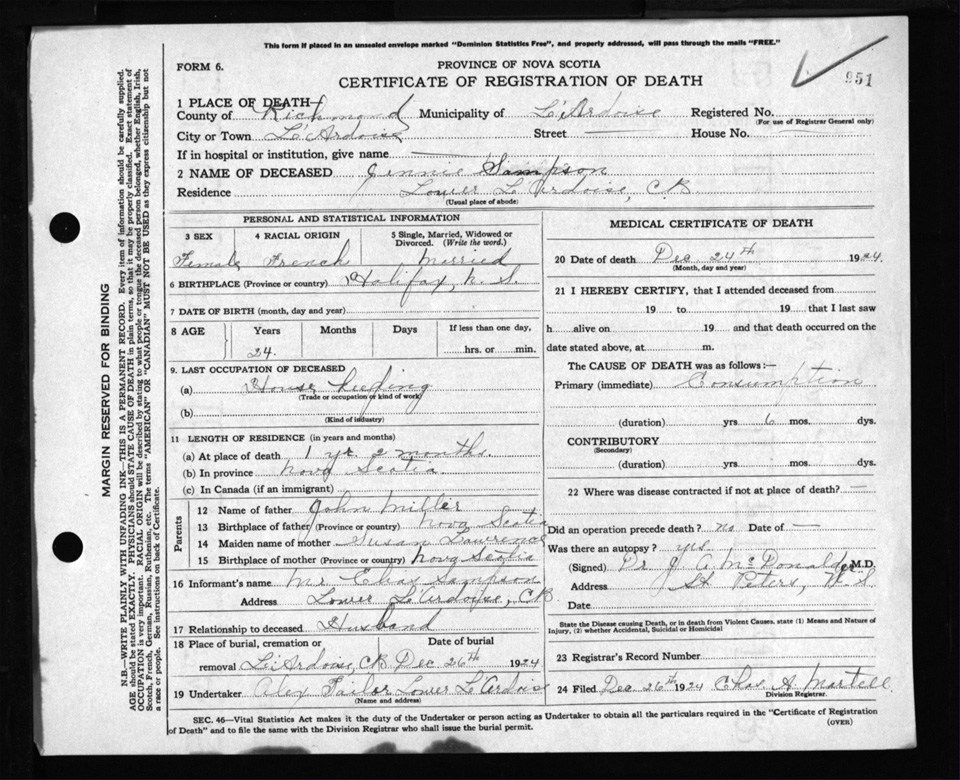 This form if placed in an unsealed envelope marked "Dominion Statistics Free", and properly addressed, will pass through the mails "FREE."
FORM 6.
PROVINCE OF NOVA SCOTIA
CERTIFICATE OF REGISTRATION OF DEATH
951
1 PLACE OF DEATH—
County of Richmond Municipality of L'Ardoise Registered No.
(For use of Registrar General only)
City or Town L'Ardoise Street — House No. —
If in hospital or institution, give name —
2 NAME OF DECEASED Jennie Sampson
Residence Lower L'Ardoise, C.B
(Usual place of abode)
PERSONAL AND STATISTICAL INFORMATION
3 SEX 4 RACIAL ORIGIN 5 Single, Married, Widowed or Divorced. (Write the word.)
Female French Married
6 BIRTHPLACE (Province or country) Halifax, N.S.
7 DATE OF BIRTH (month, day and year)
8 AGE Years Months Days If less than one day,
24. hrs. or min.
9. LAST OCCUPATION OF DECEASED
(a) House keeping
(Trade or occupation or kind of work)
(b)
(Kind of industry)
11 LENGTH OF RESIDENCE (in years and months)
(a) At place of death 1 yr months.
(b) In province Nova Scotia
(c) In Canada (if an immigrant)
Parents
12 Name of father John Miller
13 Birthplace of father (Province or country) Nova Scotia
14 Maiden name of mother Susan Lawrence
15 Birthplace of mother (Province or country) Nova Scotia
16 Informant's name Mr Sampson
Address Lower L'Ardoise, C.B.
17 Relationship to deceased Husband
18 Place of burial, cremation or Date of burial
removal L'Ardoise, C.B. Dec 26th 1924
19 Undertaker Alex Tailor Lower L'Ardoise
(Name and address)
MEDICAL CERTIFICATE OF DEATH
20 Date of death Dec 24th 1924.
(Month, day and year)
21 I HEREBY CERTIFY, that I attended deceased from
19 to 19 that I last saw
h alive on 19 and that death occurred on the
date stated above, at m.
The CAUSE OF DEATH was as follows:—
Primary (immediate) Consumption
(duration) yrs 6 mos. dys.
CONTRIBUTORY
(Secondary)
(duration) yrs. mos. dys.
22 Where was disease contracted if not at place of death? —
Did an operation precede death? no Date of —
Was there an autopsy? yes.
(Signed) Dr J. A. McDonald M.D.
Address St. Peters, N.S.
Date
State the Disease causing Death, or in death from Violent Causes. state (1) Means and Nature of Injury, (2) whether Accidental, Suicidal or Homicidal
23 Registrar's Record Number
24 Filed Dec 26th 1924 Chas A. Martell
Division Registrar.
SEC. 46—Vital Statistics Act makes it the duty of the Undertaker or person acting as Undertaker to obtain all the particulars required in the "Certificate of Registration
of Death" and to file the same with the Division Registrar who shall issue the burial permit.
(OVER)
MARGIN RESERVED FOR BINDING
N.B.—WRITE PLAINLY WITH UNFADING INK—THIS IS A PERMANENT RECORD. Every item of information should be carefully supplied.
AGE should be stated EXACTLY. PHYSICIANS should STATE CAUSE OF DEATH in plain terms, so that it may be properly classified. Exact statement of
OCCUPATION is very important. RACIAL ORIGIN will be described by stating to what people or tongue the deceased person belonged, whether English, Irish,
Scotch, French, German, Russian, Ruthenian, etc. The terms "AMERICAN" OR "CANADIAN" MUST NOT BE USED as they express citizenship but not
a race or people. See instructions on back of Certificate.